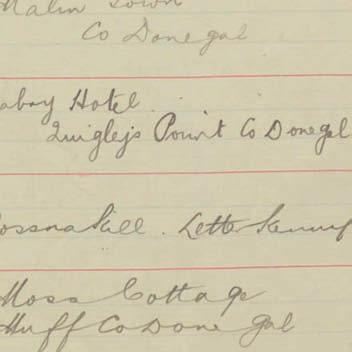 Malin Town
Co Donegal
Hotel
Quigleys Point Co Donegal
Letterkenny
Moss Cottage
Muff Co Donegal